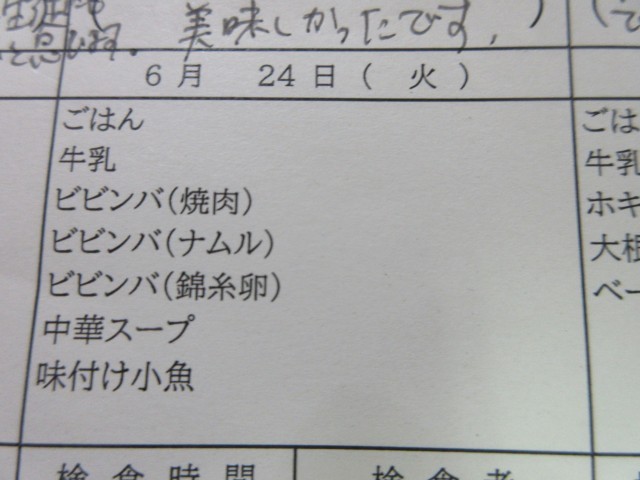 美味しかったです。
と思います。
6月 24日(火)
ごはん
牛乳
ビビンバ(焼肉)
ビビンバ(ナムル)
ビビンバ(錦糸卵)
中華スープ
味付け小魚
ごは
牛乳
ホキ
大根
ベー
検食時間
検食者